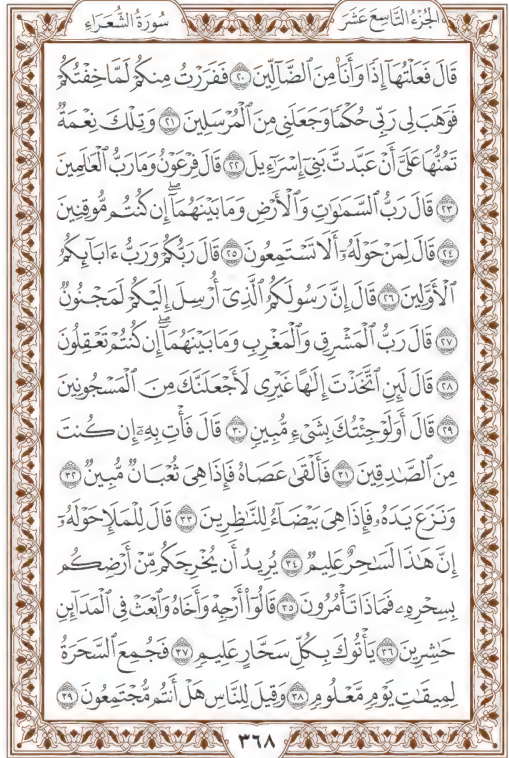 الجُزْءُ التَّاسِعَ عَشَرَ
سُورَةُ الشُّعَرَاءِ
قَالَ فَعَلْتُهَآ إِذًا وَأَنَا۠ مِنَ ٱلضَّآلِّينَ ﴿٢٠﴾ فَفَرَرْتُ مِنكُمْ لَمَّا خِفْتُكُمْ
فَوَهَبَ لِى رَبِّى حُكْمًا وَجَعَلَنِى مِنَ ٱلْمُرْسَلِينَ ﴿٢١﴾ وَتِلْكَ نِعْمَةٌ
تَمُنُّهَا عَلَىَّ أَنْ عَبَّدتَّ بَنِىٓ إِسْرَٰٓءِيلَ ﴿٢٢﴾ قَالَ فِرْعَوْنُ وَمَا رَبُّ ٱلْعَٰلَمِينَ
﴿٢٣﴾ قَالَ رَبُّ ٱلسَّمَٰوَٰتِ وَٱلْأَرْضِ وَمَا بَيْنَهُمَآ ۖ إِن كُنتُم مُّوقِنِينَ
﴿٢٤﴾ قَالَ لِمَنْ حَوْلَهُۥٓ أَلَا تَسْتَمِعُونَ ﴿٢٥﴾ قَالَ رَبُّكُمْ وَرَبُّ ءَابَآئِكُمُ
ٱلْأَوَّلِينَ ﴿٢٦﴾ قَالَ إِنَّ رَسُولَكُمُ ٱلَّذِىٓ أُرْسِلَ إِلَيْكُمْ لَمَجْنُونٌ
﴿٢٧﴾ قَالَ رَبُّ ٱلْمَشْرِقِ وَٱلْمَغْرِبِ وَمَا بَيْنَهُمَآ ۖ إِن كُنتُمْ تَعْقِلُونَ
﴿٢٨﴾ قَالَ لَئِنِ ٱتَّخَذْتَ إِلَٰهًا غَيْرِى لَأَجْعَلَنَّكَ مِنَ ٱلْمَسْجُونِينَ
﴿٢٩﴾ قَالَ أَوَلَوْ جِئْتُكَ بِشَىْءٍ مُّبِينٍ ﴿٣٠﴾ قَالَ فَأْتِ بِهِۦٓ إِن كُنتَ
مِنَ ٱلصَّٰدِقِينَ ﴿٣١﴾ فَأَلْقَىٰ عَصَاهُ فَإِذَا هِىَ ثُعْبَانٌ مُّبِينٌ ﴿٣٢﴾
وَنَزَعَ يَدَهُۥ فَإِذَا هِىَ بَيْضَآءُ لِلنَّٰظِرِينَ ﴿٣٣﴾ قَالَ لِلْمَلَإِ حَوْلَهُۥٓ
إِنَّ هَٰذَا لَسَٰحِرٌ عَلِيمٌ ﴿٣٤﴾ يُرِيدُ أَن يُخْرِجَكُم مِّنْ أَرْضِكُم
بِسِحْرِهِۦ فَمَاذَا تَأْمُرُونَ ﴿٣٥﴾ قَالُوٓا۟ أَرْجِهْ وَأَخَاهُ وَٱبْعَثْ فِى ٱلْمَدَآئِنِ
حَٰشِرِينَ ﴿٣٦﴾ يَأْتُوكَ بِكُلِّ سَحَّارٍ عَلِيمٍ ﴿٣٧﴾ فَجُمِعَ ٱلسَّحَرَةُ
لِمِيقَٰتِ يَوْمٍ مَّعْلُومٍ ﴿٣٨﴾ وَقِيلَ لِلنَّاسِ هَلْ أَنتُم مُّجْتَمِعُونَ ﴿٣٩﴾
٣٦٨